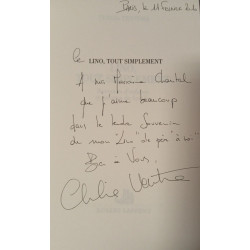 Paris, le 11 Février
Le LINO, TOUT SIMPLEMENT
A ma Chantal
que j'aime beaucoup
dans le tendre Souvenir
de mon "Lino" de père "à moi"
Bien à Vous,